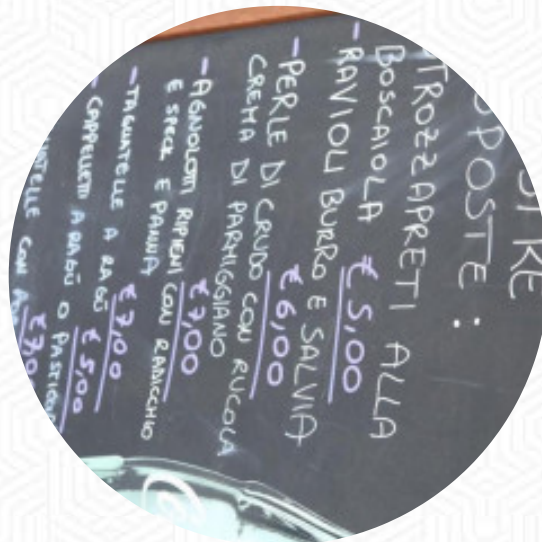 POSTE :
TROZZAPRETI ALLA
BOSCAIOLA € 5,00
- RAVIOLI BURRO E SALVIA
€ 6,00
- PERLE DI CRUDO CON RUCOLA
CREMA DI PARMIGGIANO
€ 7,00
- AGNOLOTTI RIPIENI CON RADICCHIO
E SPECK E PANNA
€ 7,00
- TAGLIATELLE A RAGÙ
€ 5,00
- CAPPELLETTI A RAGÙ O
€ 7,0
CON